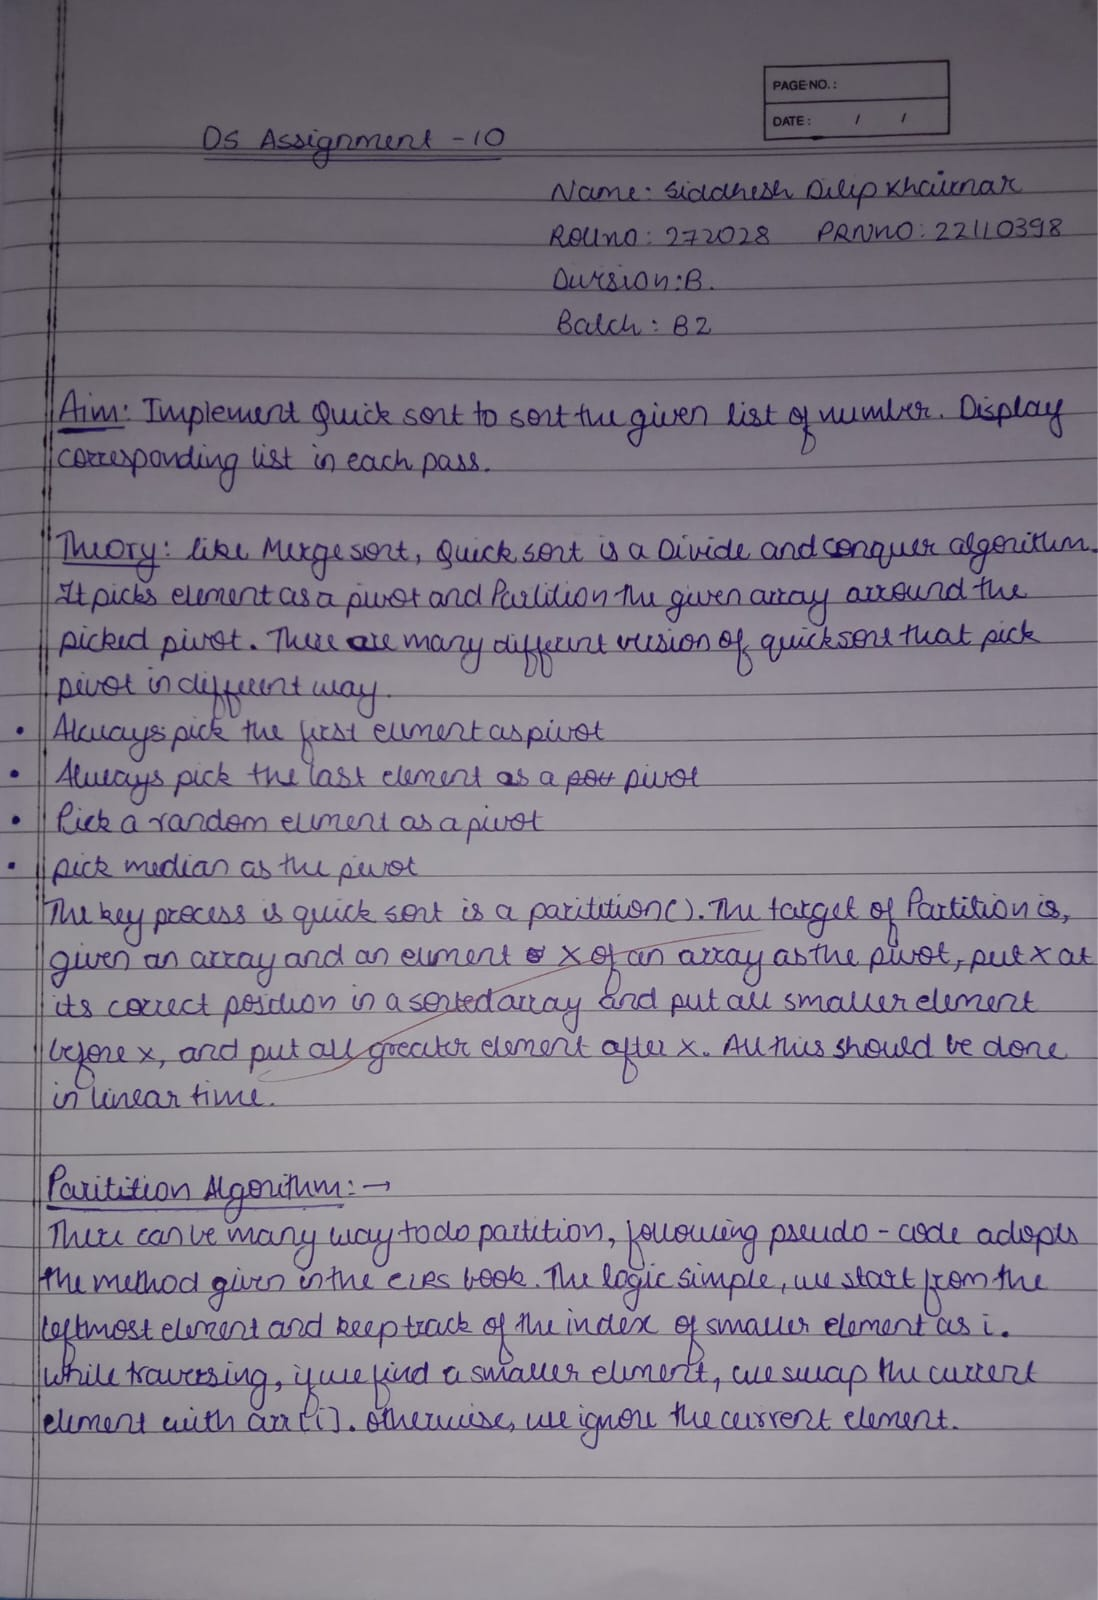 PAGE NO. :
DATE : / /
DS Assignment - 10
Name: Siddhesh Dilip Khairnar
Rollno: 272028 PRNNO: 22110398
Division: B.
Batch: B2
Aim: Implement Quick sort to sort the given list of number. Display
corresponding list in each pass.
Theory: like Merge sort, Quick sort is a Divide and conquer algorithm.
It picks element as a pivot and Partition the given array arround the
picked pivot. There are many different version of quicksort that pick
pivot in different way.
• Always pick the first element as pivot
• Always pick the last element as a pivot
• Pick a random element as a pivot
• pick median as the pivot
The key process is quick sort is a paritition(). The target of Partition is,
given an array and an element x of an array as the pivot, put x at
its correct position in a sorted array and put all smaller element
before x, and put all greater element after x. All this should be done
in linear time.
Paritition Algorithm: →
There can be many way to do partition, following pseudo - code adopts
the method given in the CLRS book. The logic simple, we start from the
leftmost element and keep track of the index of smaller element as i.
while traversing, if we find a smaller element, we swap the current
element with arr[i]. otherwise, we ignore the current element.